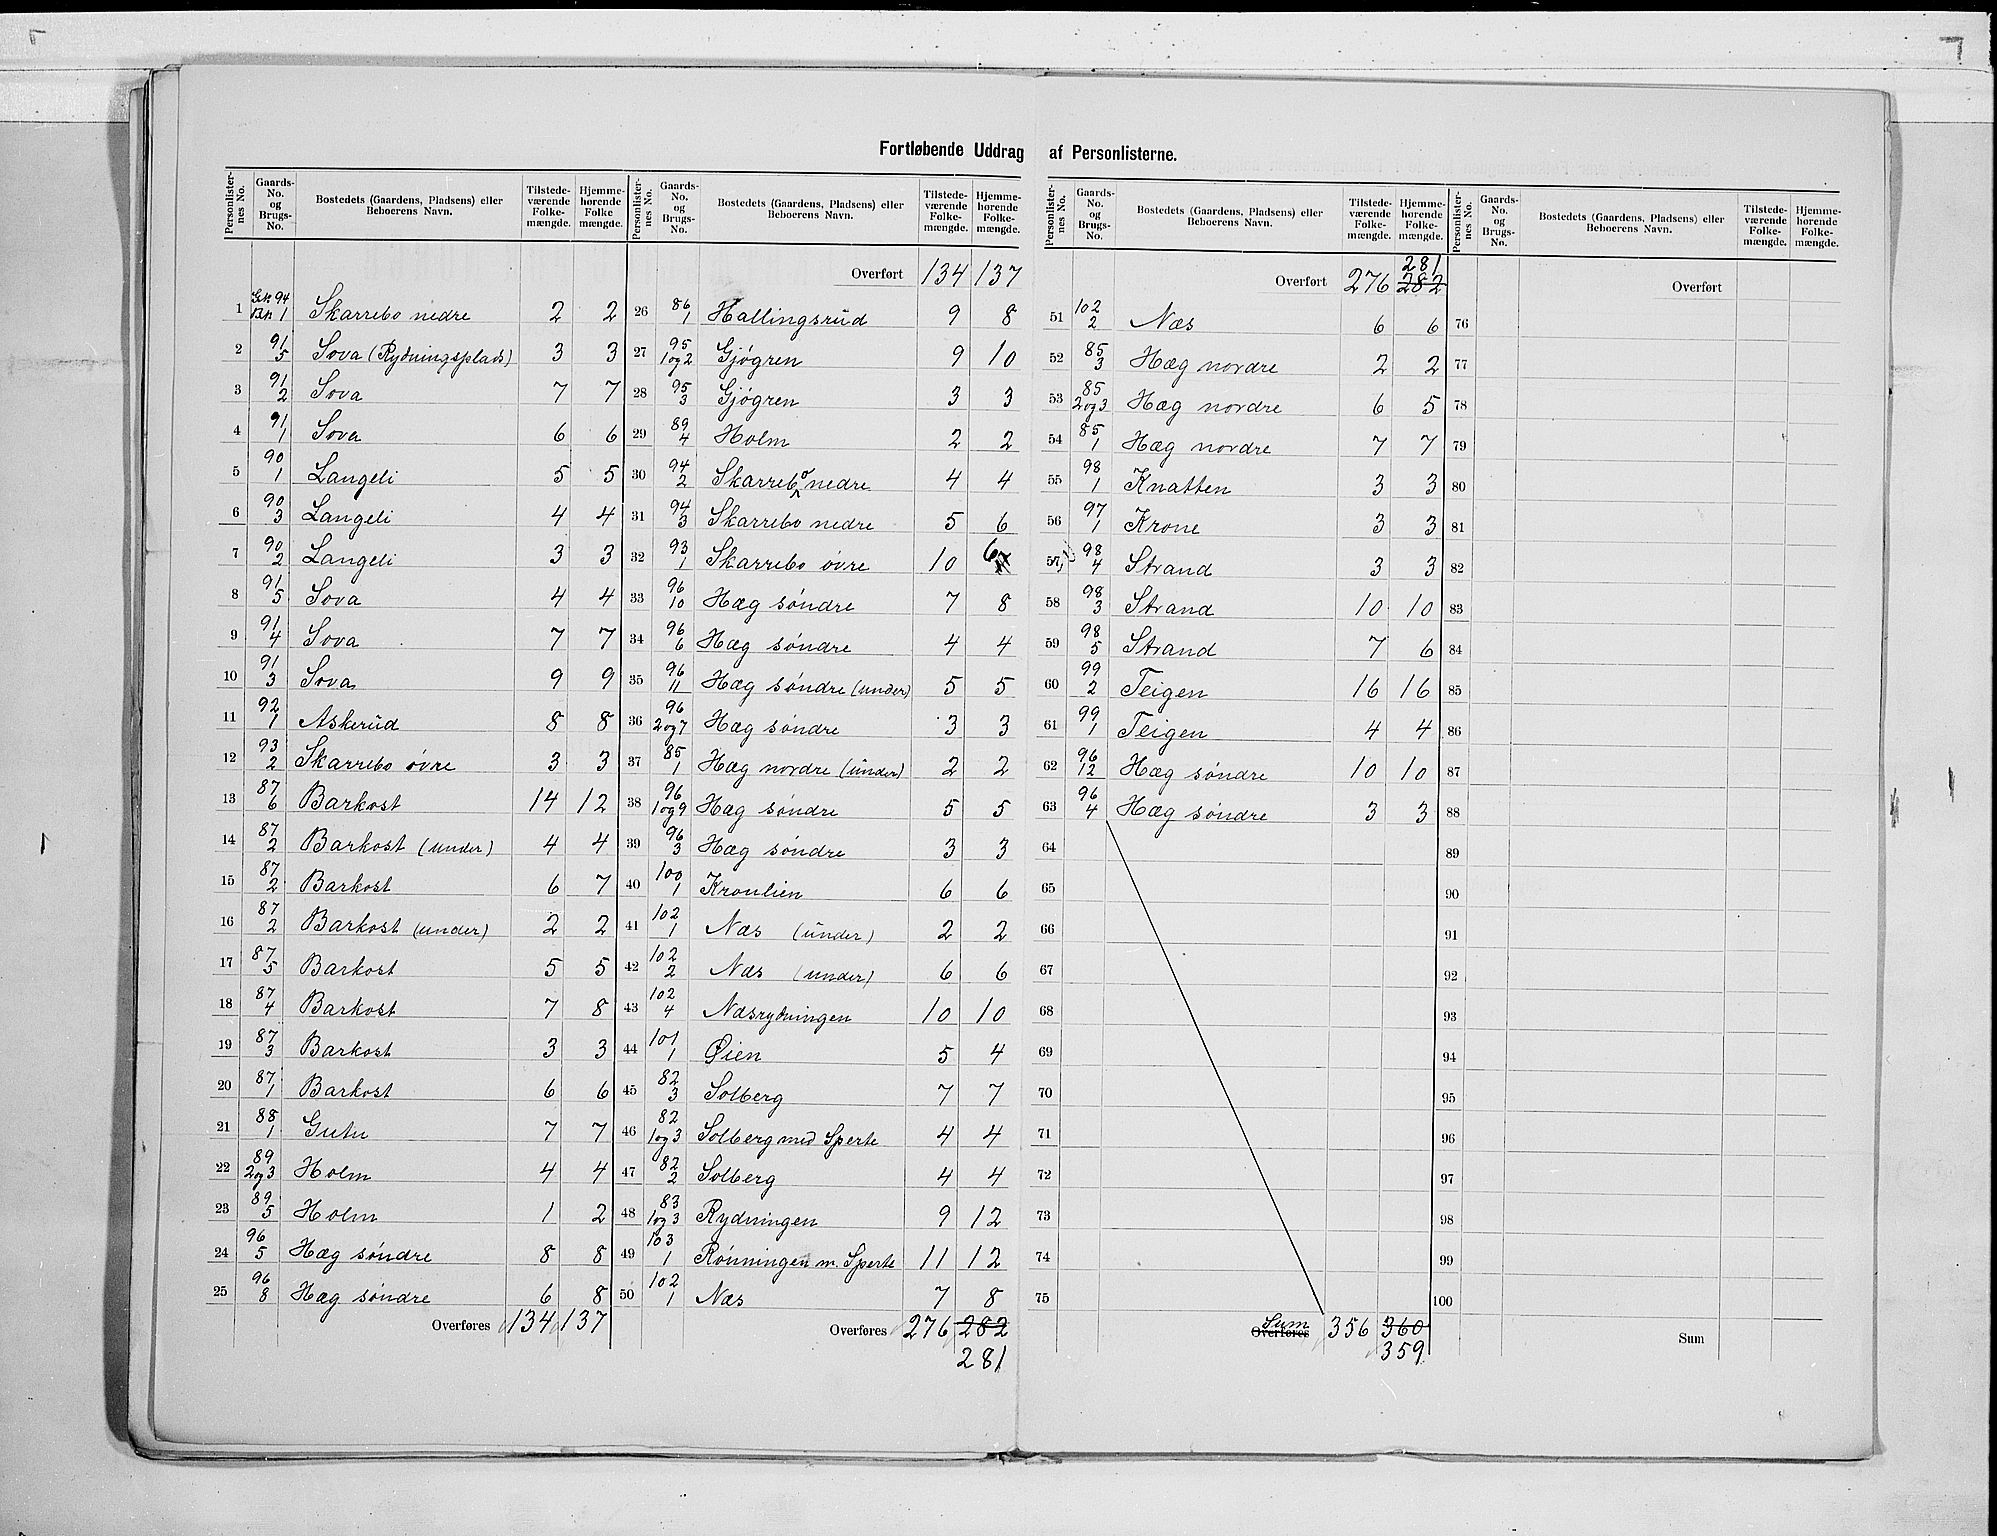 Fortløbende Uddrag af Personlisterne.
Personlisternes No. Gaards-No. og Brugs-No. Bostedets (Gaardens, Pladsens) eller Beboerens Navn. Tilstedeværende Folkemængde. Hjemmehørende Folke mængde.
1 Gn. 94 Bn 1 Skarrebo nedre 2 2
2 91 5 Sova (Rydningsplads) 3 3
3 91 2 Sova 7 7
4 91 1 Sova 6 6
5 90 1 Langeli 5 5
6 90 3 Langeli 4 4
7 90 2 Langeli 3 3
8 91 5 Sova 4 4
9 91 4 Sova 7 7
10 91 3 Sova 9 9
11 92 1 Askerud 8 8
12 93 2 Skarrebo øvre 3 3
13 87 6 Barkost 14 12
14 87 2 Barkost (under) 4 4
15 87 2 Barkost 6 7
16 87 2 Barkost (under) 2 2
17 87 5 Barkost 5 5
18 87 4 Barkost 7 8
19 87 3 Barkost 3 3
20 87 1 Barkost 6 6
21 88 1 Gutu 7 7
22 89 2og3 Holm 4 4
23 89 5 Holm 1 2
24 96 5 Hæg søndre 8 8
25 96 8 Hæg søndre 6 8
Overføres 134 137
Personlisternes No. Gaards-No. og Brugs-No. Bostedets (Gaardens, Pladsens) eller Beboerens Navn. Tilstedeværende Folkemængde. Hjemmehørende Folkemængde.
Overført 134 137
26 86 1 Hallingsrud 9 8
27 95 1og2 Gjøgren 9 10
28 95 3 Gjøgren 3 3
29 89 4 Holm 2 2
30 94 2 Skarrebo nedre 4 4
31 94 3 Skarrebo nedre 5 6
32 93 1 Skarrebo øvre 10 6
33 96 10 Hæg søndre 7 8
34 96 6 Hæg søndre 4 4
35 96 11 Hæg søndre (under) 5 5
36 96 2og7 Hæg søndre 3 3
37 85 1 Hæg nordre (under) 2 2
38 96 1og9 Hæg søndre 5 5
39 96 3 Hæg søndre 3 3
40 100 1 Kronlien 6 6
41 102 1 Næs (under) 2 2
42 102 2 Næs (under) 6 6
43 102 4 Næsrydningen 10 10
44 101 1 Øien 5 4
45 82 3 Solberg 7 7
46 82 1og3 Solberg med Sperte 4 4
47 82 2 Solberg 4 4
48 83 1og3 Rydningen 9 12
49 103 1 Rønningen m. Sperte 11 12
50 102 1 Næs 7 8
Overføres 276 282
281
Personlisternes No. Gaards-No. og Brugs-No. Bostedets (Gaardens, Pladsens) eller Beboerens Navn. Tilstedeværende Folkemængde. Hjemmehørende Folkemængde.
281
Overført 276 282
51 102 2 Næs 6 6
52 85 3 Hæg nordre 2 2
53 85 2og3 Hæg nordre 6 5
54 85 1 Hæg nordre 7 7
55 98 1 Knatten 3 3
56 97 1 Krone 3 3
57 98 4 Strand 3 3
58 98 3 Strand 10 10
59 98 5 Strand 7 6
60 99 2 Teigen 16 16
61 99 1 Teigen 4 4
62 96 12 Hæg søndre 10 10
63 96 4 Hæg søndre 3 3
64
65
66
67
68
69
70
71
72
73
74
75
Sum
Overføres 356 360
359
Personlisternes No. Gaards-No. og Brugs-No. Bostedets (Gaardens, Pladsens) eller Beboerens Navn. Tilstedeværende Folkemængde. Hjemmehørende Folkemængde.
Overført
76
77
78
79
80
81
82
83
84
85
86
87
88
89
90
91
92
93
94
95
96
97
98
99
100
Sum